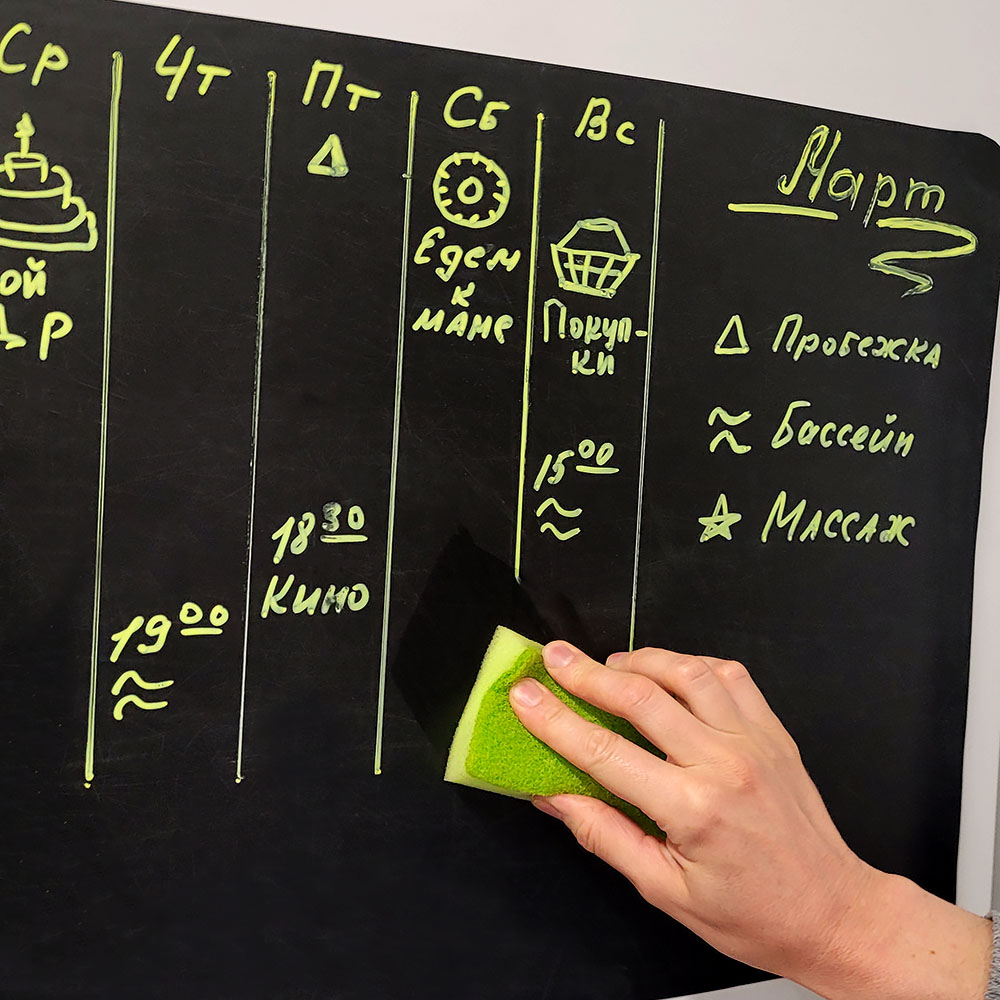 Ср Чт Пт Сб Вс
Март
ой
ДР
Едем
к
маме
Покуп-
ки
15 00
18 30
Кино
19 00
Пробежка
Бассейн
Массаж